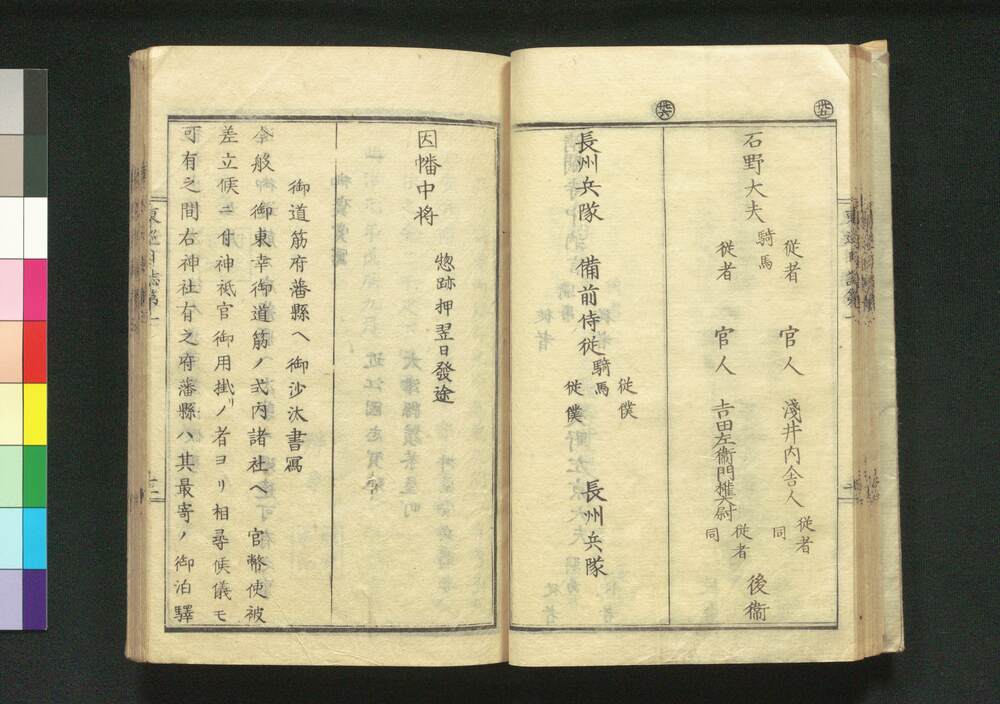 石野大夫 騎馬 従者 従者 官人 官人 淺井内舎人 従者 同 吉田左衛門權大尉 従者 同 後衞
長州兵隊 備前侍従 騎馬 従僕 従僕 長州兵隊
因幡中将
惣跡押翌日發途
御道筋府藩縣ヘ御沙汰書写
今般 御東幸御道筋ノ式内諸社ヘ 官幣使被
差立候ニ付神祗官御用掛リノ者ヨリ相尋候儀モ
可有之間右神社有之府藩縣ハ其最寄ノ御泊驛